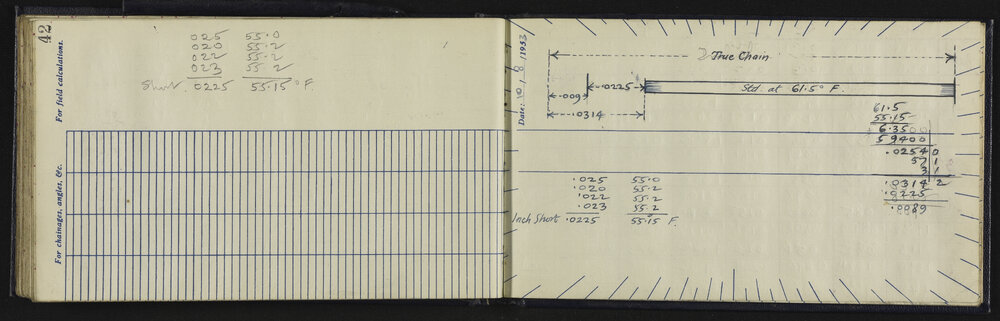 42
For field calculations.
For chainages, angles, &c.
025 55.0
020 55.2
022 55.2
023 55.2
Short .0225 55.15° F.
Date: 10 / 8 /1933
True Chain
.0225
.009
.0314
Std. at 61.5° F.
61.5
55.15
6.3500
59400
.02540
57 1
3 1
.0314 2
.0225
.0089
.025 55.0
.020 55.2
.022 55.2
.023 55.2
Inch Short .0225 55.15° F.